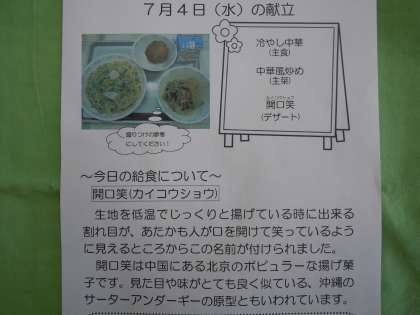 7月4日（水）の献立
冷やし中華
（主食）
中華風炒め
（主菜）
カイコウショウ
開口笑
（デザート）
盛りつけの参考
にしてください！
～今日の給食について～
開口笑(カイコウショウ)
生地を低温でじっくりと揚げている時に出来る
割れ目が、あたかも人が口を開けて笑っているよう
に見えるところからこの名前が付けられました。
開口笑は中国にある北京のポピュラーな揚げ菓
子です。見た目や味がとても良く似ている、沖縄の
サーターアンダーギーの原型ともいわれています。